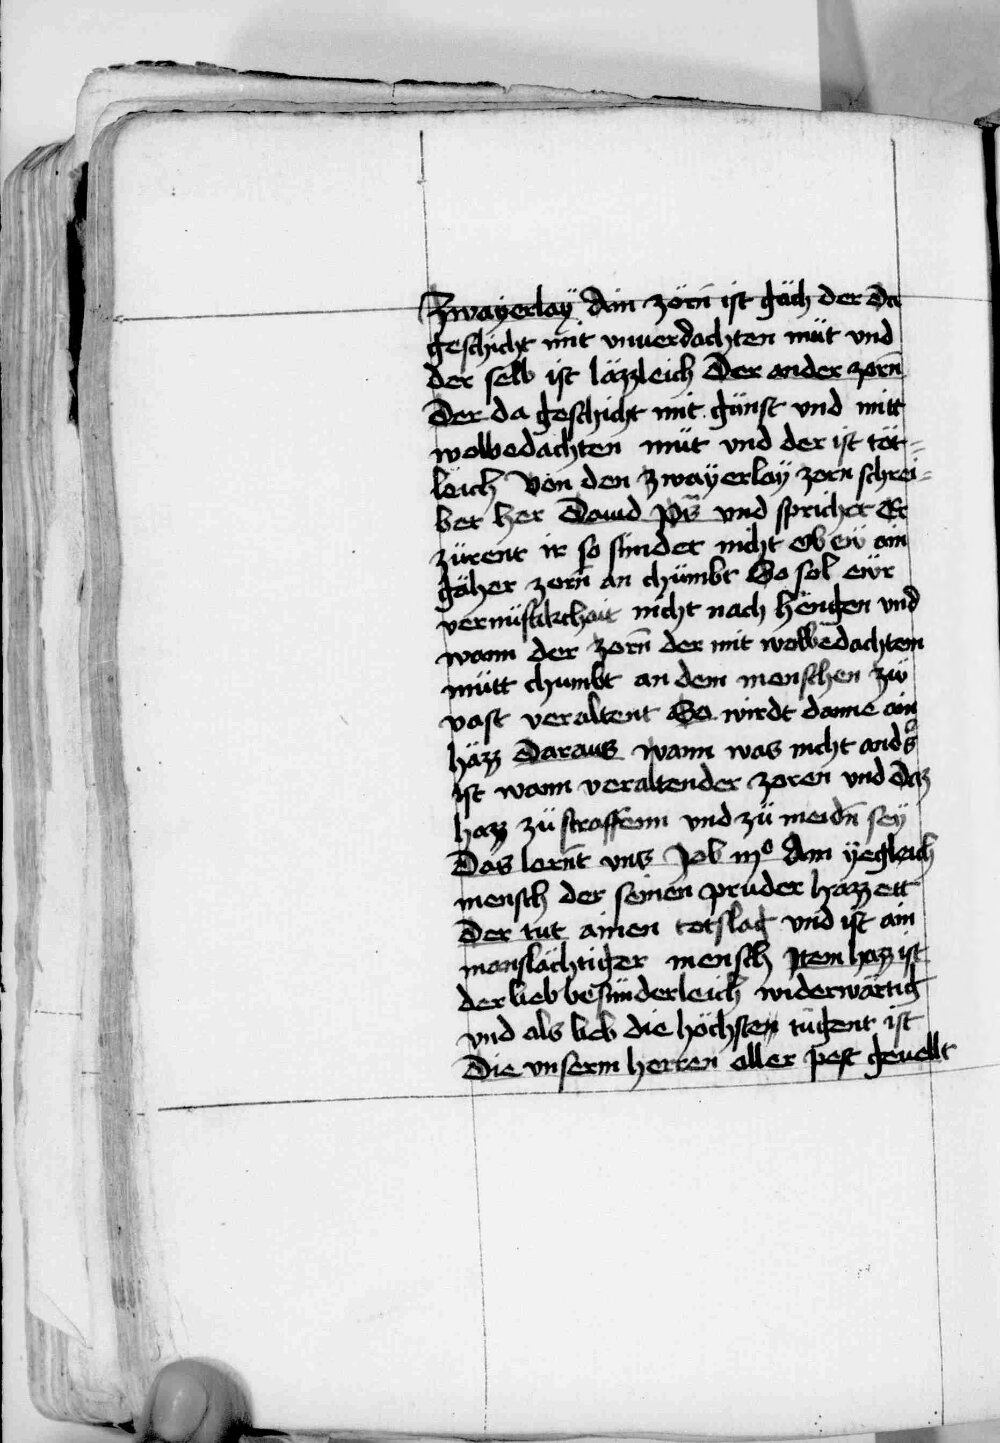 Zwayerlaÿ Ain zörn̄ ist gäch der da
geschicht mit vnuerdachten müt vnd
der selb ist läzzleich Der ander zorn̄
Der da geschicht mit günst vnd mitt
wolbedachten müt vnd der ist töt=
leich Von den zwayerlaÿ zorn schrei=
bet her Dauid pß̄ vnd sprichet Er
zürent ir so sündet nicht Ob eẅ ain
gäher zorn̄ an chümbt So sol eẅr
vernüftikchait nicht nach hengen vnd
wann der zorn̄ der mit wolbedachtem
mütt chumbt an dem menschen zw
vast veraltent So wirdt danne ain
häzz Daraus wann was nicht and̓s
ist wann veraltender zoren vnd Daz
hazz zü straffenn vnd zü meidn̄ seÿ
Das lernt̄ vns Job iij⁰ Ain ÿegleich
mensch der seinen pruder hazzett
Der tut ainen totslag vnd ist ain
manslächtiger mensch Item hazz ist
der lieb besünderleich widerwärtig
vnd als lieb die höchsten tugent ist
Die vnserm herren aller pest geuellt